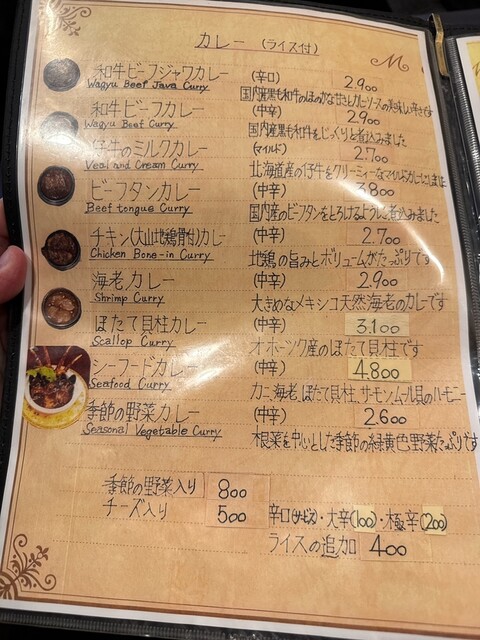 カレー (ライス付)
和牛ビーフジャワカレー (辛口) 2.900
Wagyu Beef Java Curry
国内産黒毛和牛のほのかな甘さとカレーソースの美味しい辛さです
和牛ビーフカレー (中辛) 2900
Wagyu Beef Curry
国内産黒毛和牛をじっくりと煮込みました
仔牛のミルクカレー (マイルド) 2.700
Veal and Cream Curry
北海道産の仔牛をクリーミィーなマイルドカレーにしました
ビーフタンカレー (中辛) 3.800
Beef tongue Curry
国内産のビーフタンをとろけるように煮込みました
チキン(大山地鶏骨付)カレー (中辛) 2.700
Chicken Bone-in Curry
地鶏の旨みとボリュームがたっぷりです
海老カレー (中辛) 2.900
Shrimp Curry
大きめなメキシコ天然海老のカレーです
ほたて貝柱カレー (中辛) 3.100
Scallop Curry
オホーツク産のほたて貝柱です
シーフードカレー (中辛) 4.800
Seafood Curry
カニ海老ほたて貝柱サーモンムール貝のハーモニー
季節の野菜カレー (中辛) 2.600
Seasonal Vegetable Curry
根菜を中心とした季節の緑黄色野菜たっぷりです
季節の野菜入り 800
チーズ入り 500
辛口(サービス)・大辛(100)・極辛(200)
ライスの追加 400